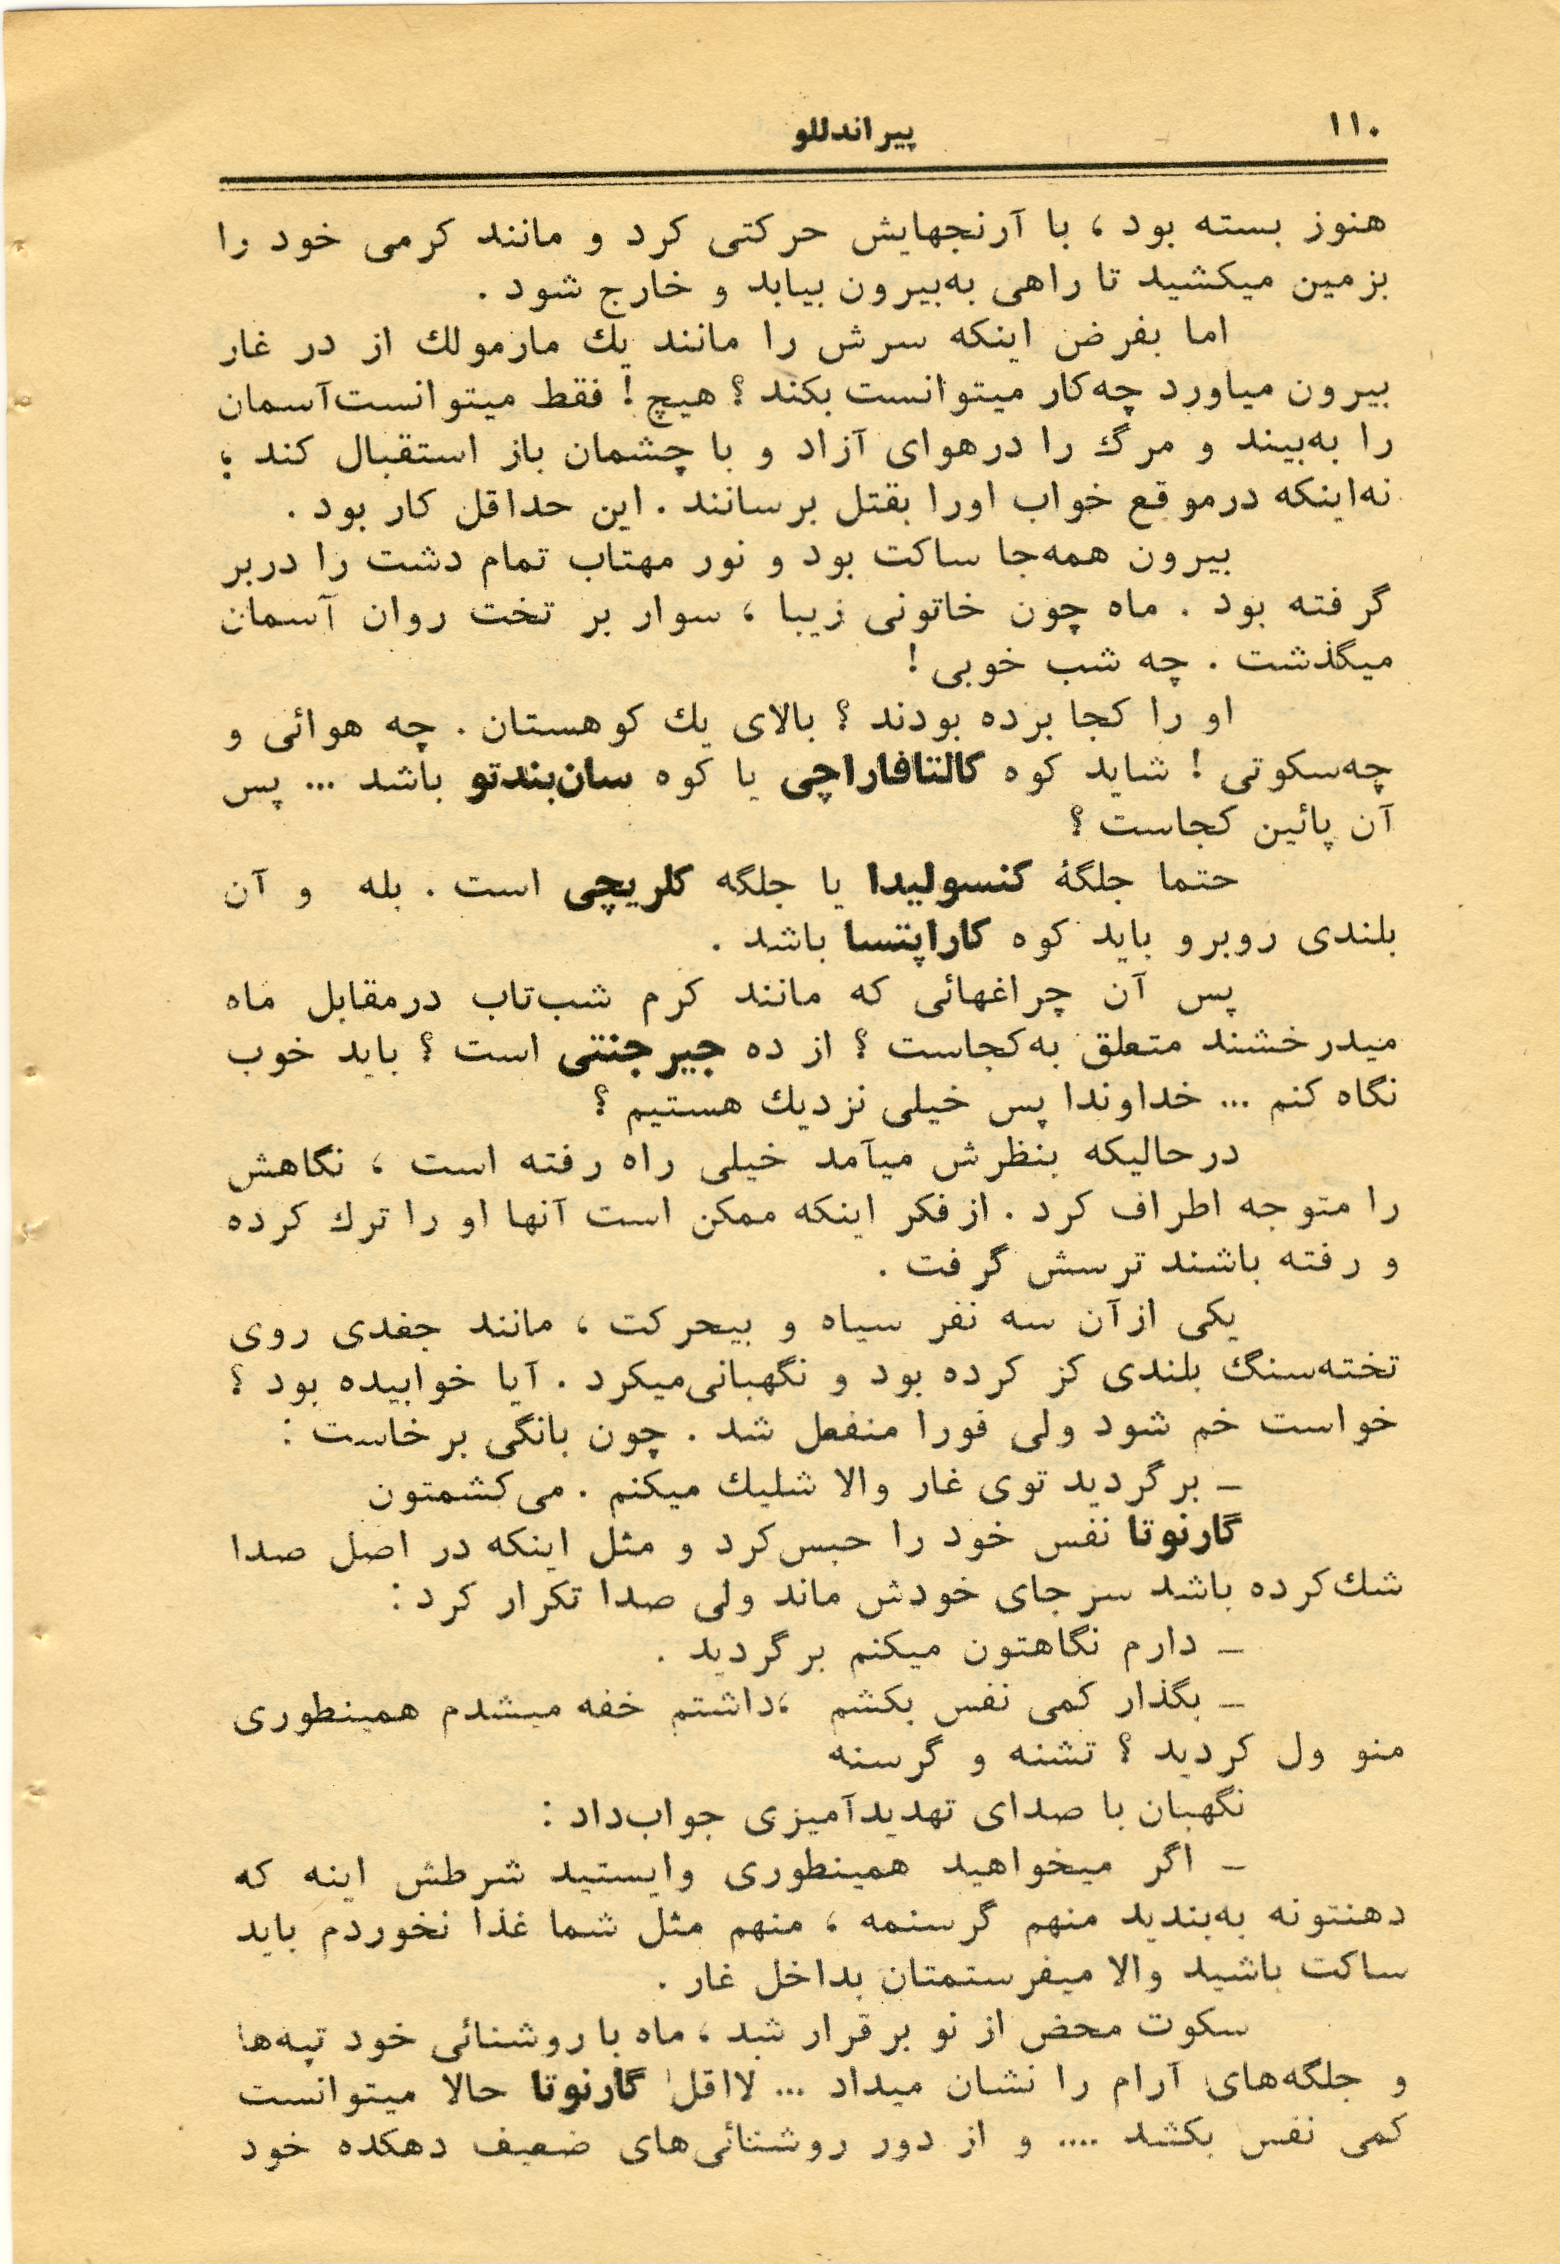 ۱۱۰
پیراندللو
هنوز بسته بود ، با آرنجهایش حرکتی کرد و مانند کرمی خود را
بزمین میکشید تا راهی به‌بیرون بیابد و خارج شود .
اما بفرض اینکه سرش را مانند یك مارمولك از در غار
بیرون میاورد چه‌کار میتوانست بکند ؟ هیچ ! فقط میتوانست‌آسمان
را به‌بیند و مرگ را درهوای آزاد و با چشمان باز استقبال کند ؛
نه‌اینکه درموقع خواب اورا بقتل برسانند . این حداقل کار بود .
بیرون همه‌جا ساکت بود و نور مهتاب تمام دشت را دربر
گرفته بود . ماه چون خاتونی زیبا ، سوار بر تخت روان آسمان
میگذشت . چه شب خوبی !
او را کجا برده بودند ؟ بالای یك کوهستان . چه هوائی و
چه‌سکوتی ! شاید کوه کالتافاراچی یا کوه سان‌بندتو باشد ... پس
آن پائین کجاست ؟
حتما جلگهٔ کنسولیدا یا جلگه کلریچی است . بله و آن
بلندی روبرو باید کوه کاراپتسا باشد .
پس آن چراغهائی که مانند کرم شب‌تاب درمقابل ماه
میدرخشند متعلق به‌کجاست ؟ از ده جیرجنتی است ؟ باید خوب
نگاه کنم ... خداوندا پس خیلی نزدیك هستیم ؟
درحالیکه بنظرش میآمد خیلی راه رفته است ، نگاهش
را متوجه اطراف کرد . ازفکر اینکه ممکن است آنها او را ترك کرده
و رفته باشند ترسش گرفت .
یکی ازآن سه نفر سیاه و بیحرکت ، مانند جغدی روی
تخته‌سنگ بلندی کز کرده بود و نگهبانی‌میکرد . آیا خوابیده بود ؟
خواست خم شود ولی فورا منفعل شد . چون بانگی برخاست :
ـ برگردید توی غار والا شلیك میکنم . می‌کشمتون
گارنوتا نفس خود را حبس‌کرد و مثل اینکه در اصل صدا
شك‌کرده باشد سرجای خودش ماند ولی صدا تکرار کرد :
ـ دارم نگاهتون میکنم برگردید .
ـ بگذار کمی نفس بکشم ،داشتم خفه میشدم همینطوری
منو ول کردید ؟ تشنه و گرسنه
نگهبان با صدای تهدیدآمیزی جواب‌داد :
ـ اگر میخواهید همینطوری وایستید شرطش اینه که
دهنتونه به‌بندید منهم گرسنمه ، منهم مثل شما غذا نخوردم باید
ساکت باشید والا میفرستمتان بداخل غار .
سکوت محض از نو برقرار شد ، ماه با روشنائی خود تپه‌ها
و جلگه‌های آرام را نشان میداد ... لااقل گارنوتا حالا میتوانست
کمی نفس بکشد .... و از دور روشنائی‌های ضعیف دهکده خود